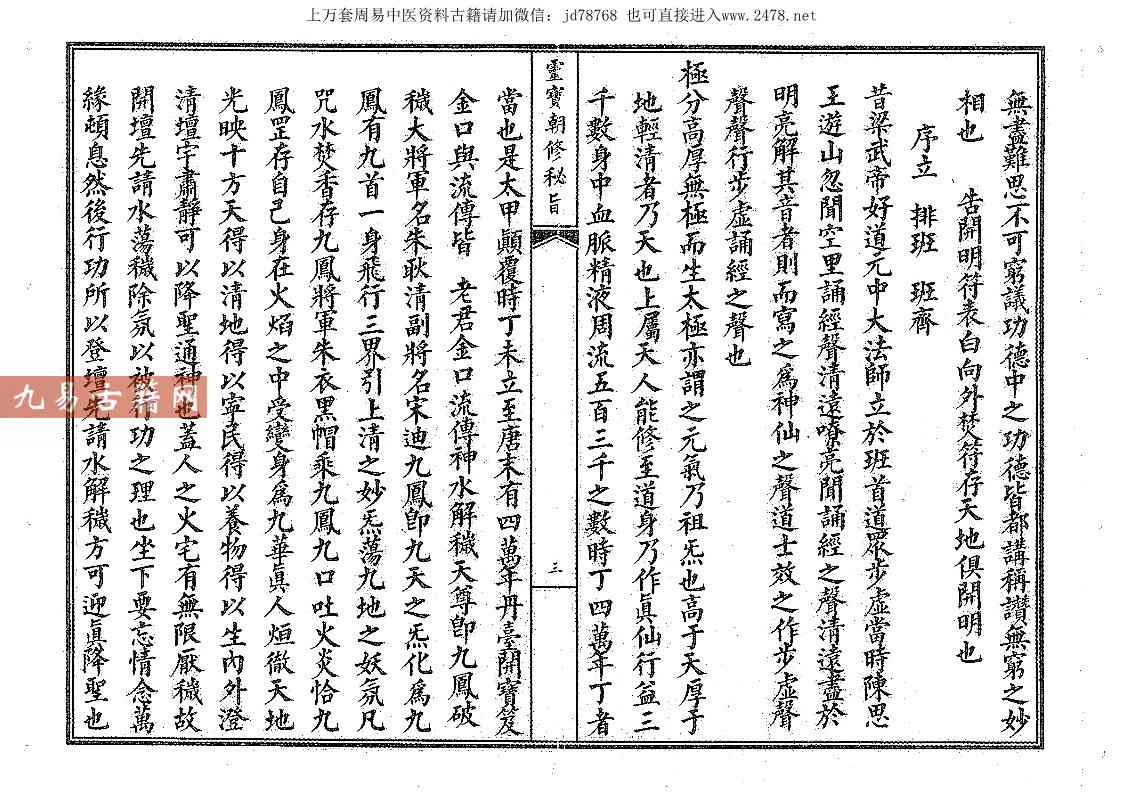 上万套周易中医资料古籍请加微信：jd78768 也可直接进入www.2478.net
無盡難思不可窮議功德中之功德皆都講稱讚無窮之妙
相也 告開明符表白向外焚符存天地俱開明也
序立 排班 班齊
昔梁武帝好道元中大法師立於班首道眾步虛當時陳思
王遊山忽聞空里誦經聲清遠嘹亮聞誦經之聲清遠盡於
明亮解其音者則而寫之為神仙之聲道士效之作步虛聲
聲聲行步虛誦經之聲也
極分高厚無極而生太極亦謂之元氣乃祖炁也高于天厚于
地輕清者乃天也上屬天人能修至道身乃作眞仙行益三
千數身中血脈精液周流五百三千之數時丁四萬年丁者
靈寶朝修秘旨
三
當也是太甲顛覆時丁未立至唐末有四萬年丹臺開寶笈
金口與流傳皆 老君金口流傳神水解穢天尊卽九鳳破
穢大將軍名朱耿清副將名宋迪九鳳卽九天之炁化為九
鳳有九首一身飛行三界引上清之妙炁蕩九地之妖氛凡
咒水焚香存九鳳將軍朱衣黑帽乘九鳳九口吐火炎恰九
鳳罡存自己身在火焰之中受變身為九華眞人烜徹天地
光映十方天得以清地得以寧民得以養物得以生內外澄
清壇宇肅靜可以降聖通神也蓋人之火宅有無限厭穢故
開壇先請水蕩穢除氛以被行功之理也坐下要忘情念萬
緣頓息然後行功所以登壇先請水解穢方可迎眞降聖也
九易古籍网